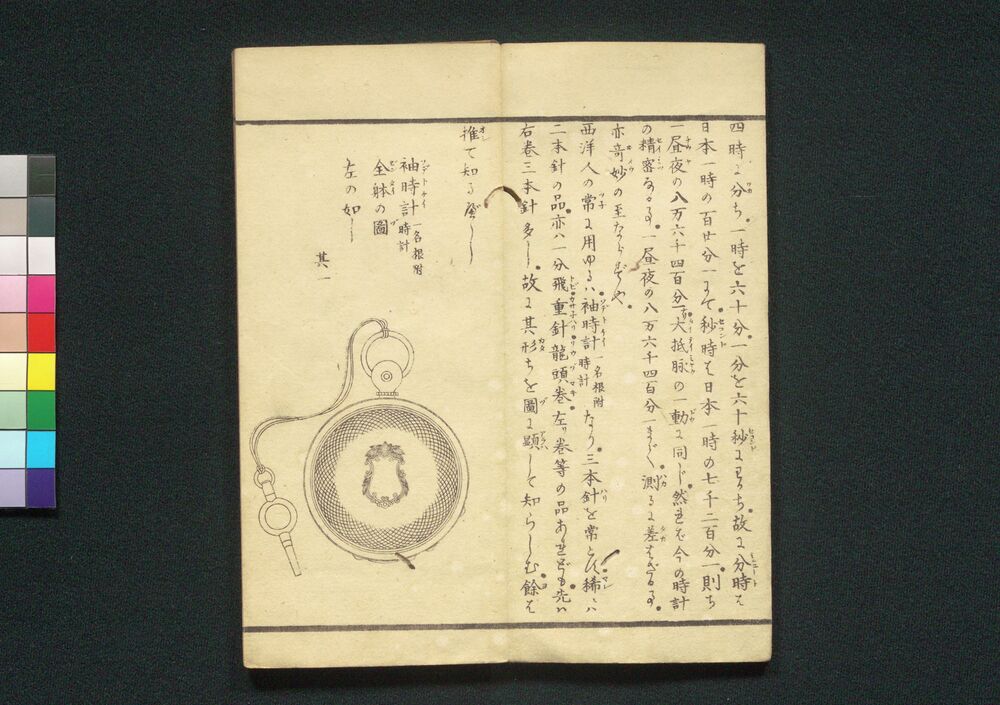 四時に分ち。一時を六十分。一分を六十秒にわかち。故に分時は
日本一時の百廿分一にて。秒時は日本一時の七千二百分一則ち
一昼夜の八万六千四百分一。大抵脈の一動に同じ。然れば今の時計
の精密なる。一昼夜の八万六千四百分一まで測るに差はざる
亦奇妙の至ならずや。
西洋人の常に用ゆるハ。袖時計一名根附時計なり。三本針を常とし。稀にハ
二本針の品。亦ハ一分飛重針龍頭巻。左り巻等の品あれども。先ハ
右巻三本針多し。故に其形ちを圖に顕して知らしむ。餘は
推て知る
袖時計一名根附時計
全躰の圖
左の如し
其一